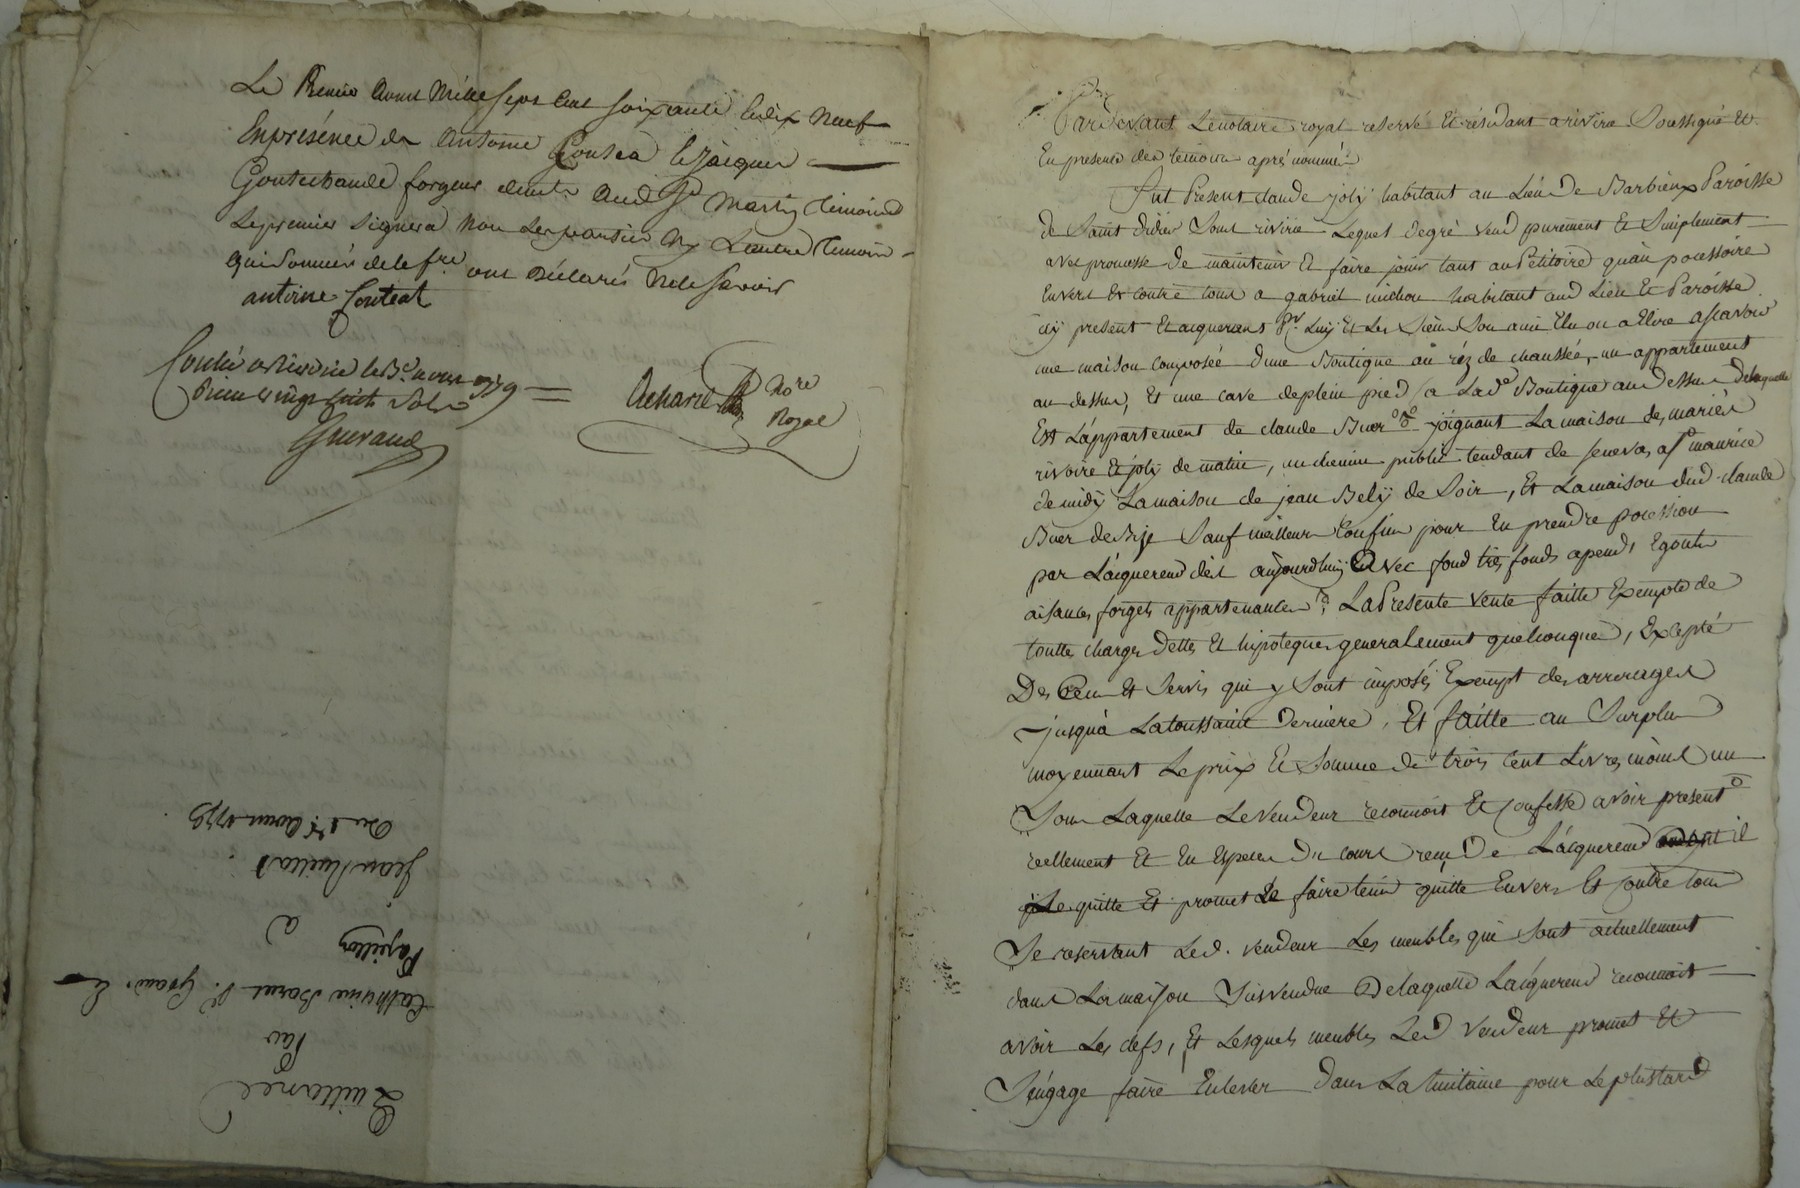 Le Premier Avril Mille sept cent soixante et dix neuf
En présence de Antoine Conteat et Jacques
forgeur aud St Martin temoins
Le premier signera non les parties ny L'autre temoin
qui sommés de le fre ont Déclarés ne le Savoir
antoine Conteat
Contlé a Riverie le avril 1779
Reçu vingt huit Sols
Achard Nore
Royal
Quittance
Par
Catherine
Papillon
a
Jean
Du 1er Avril 1779
Pardevant Le notaire royal reservé Et résidant a rivirie Soussigné Et
En presence des temoins après nommés
Fut Present claude joly habitant au Lieu de Barbieux Paroisse
de Saint didier Sous rivirie Lequel de gré vend purement Et Simplement
avec promesse de maintenir Et faire jouir tant au Petitoire qu'au possessoire
Envers Et contre tous a gabriel michou habitant aud Lieu Et Paroisse
icy present Et acquerant pr Luy Et Les Siens Son ami Elu ou a Elire a Scavoir
une maison composée d'une Boutique au réz de chaussée, un appartement
au dessus, Et une cave de plein pied a Lade Boutique au dessus de laquelle
Est L'appartement de claude Buer joignant La maison des mariés
rivoire Et joly de matin, un chemin public tendant de a St maurice
de midy La maison de jean Bely de Soir, Et La maison dud. claude
Buer de Bize Sauf meilleurs Confins pour En prendre possession
par L'acquereur dès aujourdhuy Avec fond très fonds apends Egouts
aisances forgets appartenances La Presente vente faitte Exempte de
toutte charges dettes Et hipoteques generalement quelconques, Excepté
Des Cens Et Servis qui y Sont imposés Exempt des arrerages
jusqua La toussaint derniere, Et faitte au Surplus
moyennant Le prix Et Somme de trois Cent Livres moins un
Sous Laquelle Le vendeur reconnoit Et confesse avoir presentt
reellement Et En Especes du cours reçu De L'acquereur il
Le quitte Et promet Le faire tenir quitte Envers Et contre tous
Se reservant Led. vendeur Les meubles qui Sont actuellement
dans La maison Sus vendue De laquelle L'acquereur reconnoit
avoir Les clefs, Et Lesquels meubles Led vendeur promet Et
S'engage faire Enlever dans La huitaine pour Le plus tard